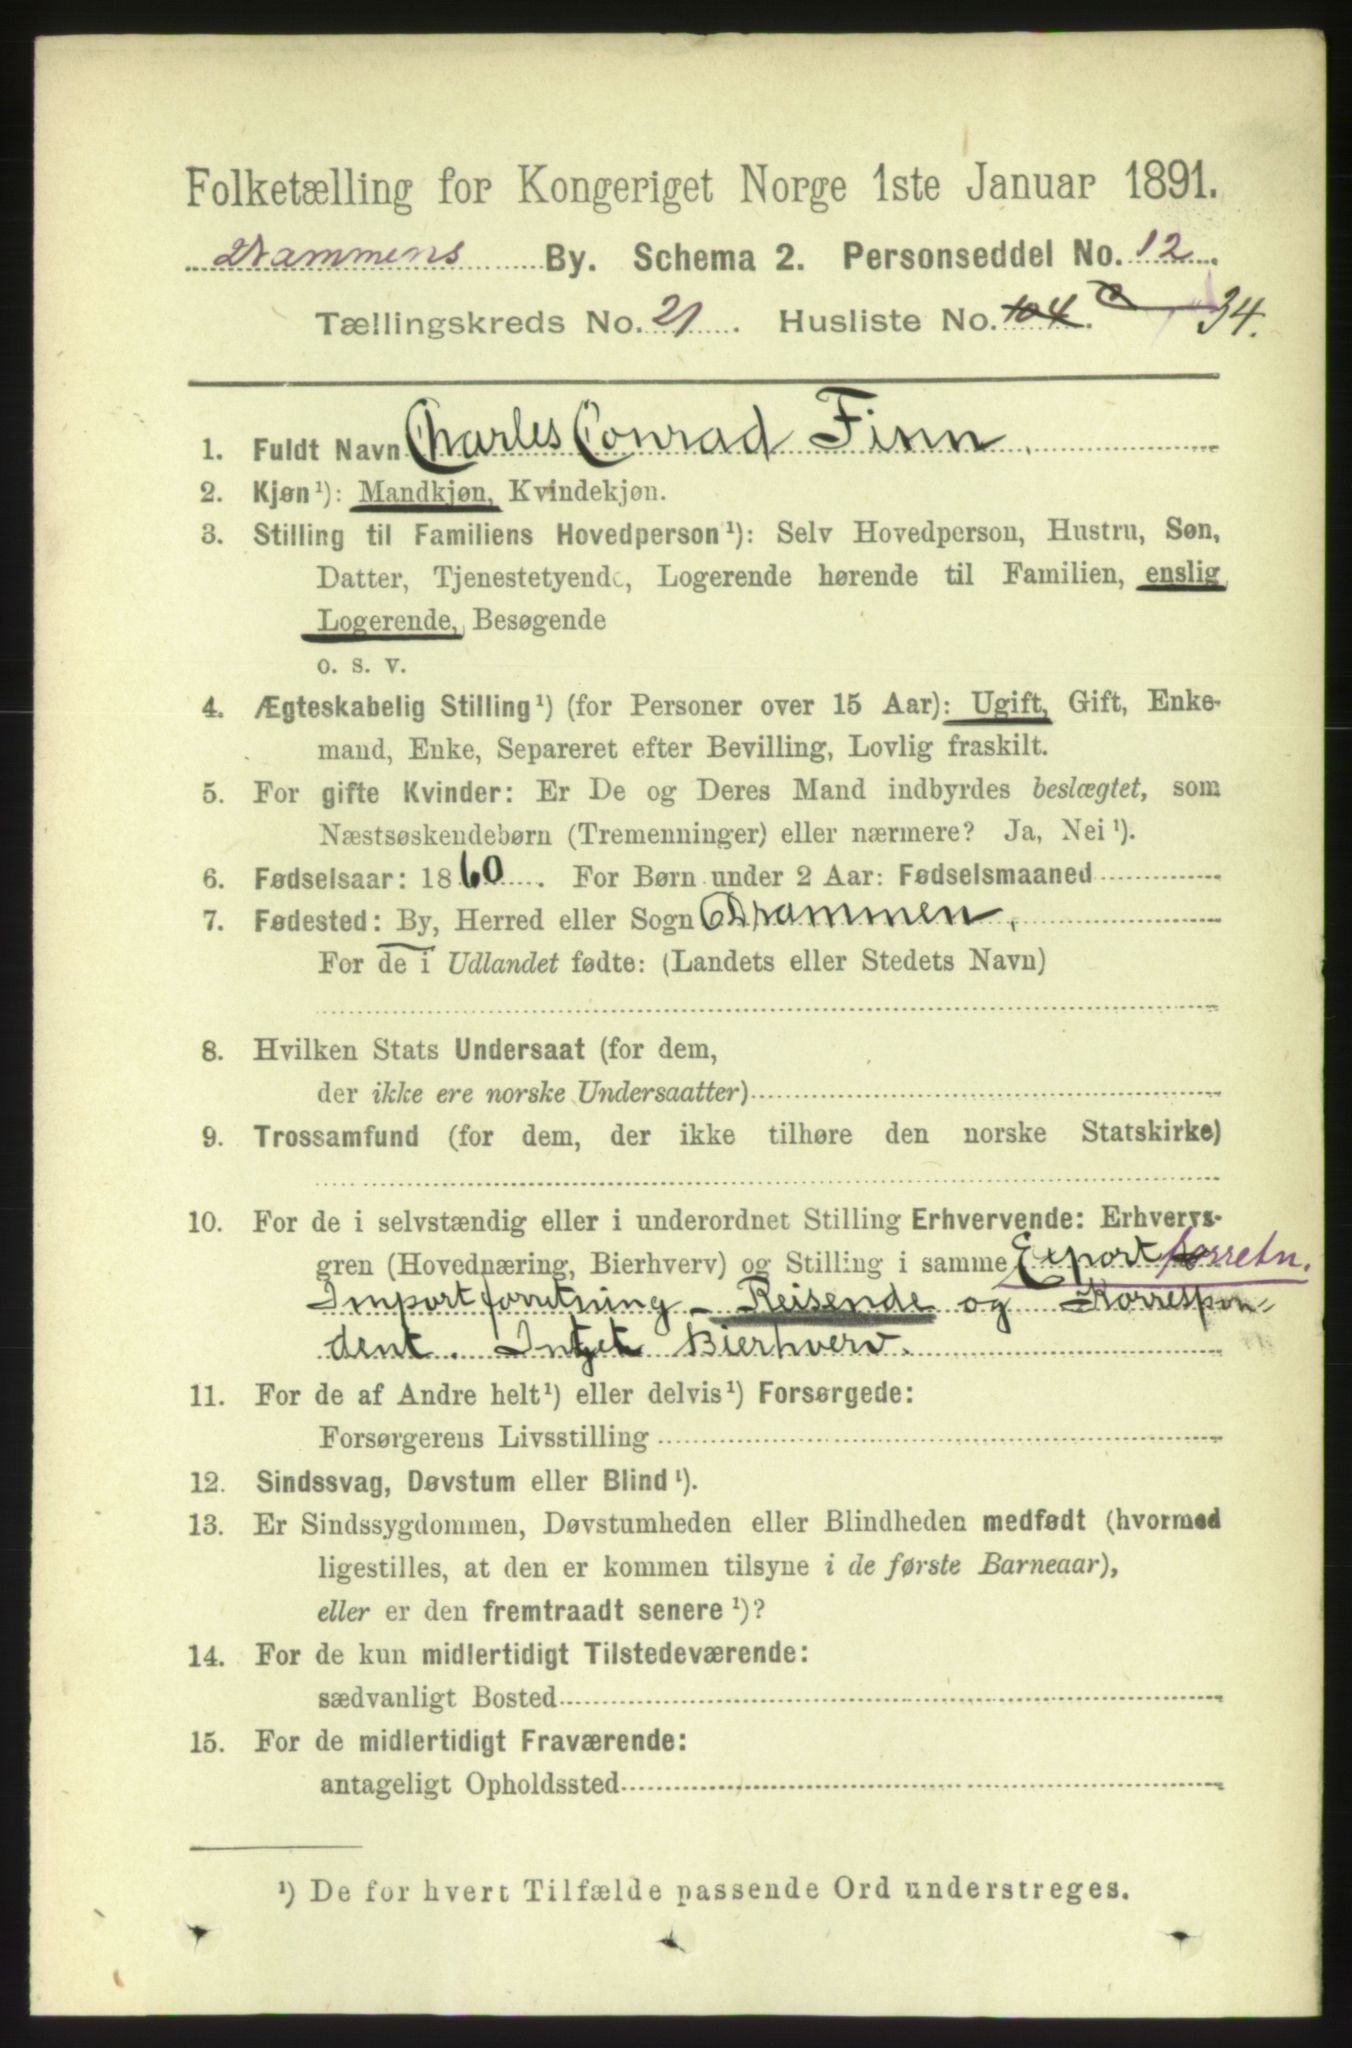 Folketælling for Kongeriget Norge 1ste Januar 1891.
Drammens By. Schema 2. Personseddel No. 12.
Tællingskreds No. 21. Husliste No. 104. 34.
1. Fuldt Navn Charles Conrad Finn.
2. Kjøn¹): Mandkjøn, Kvindekjøn.
3. Stilling til Familiens Hovedperson¹): Selv Hovedperson, Hustru, Søn,
Datter, Tjenestetyende, Logerende hørende til Familien, enslig
Logerende, Besøgende
o. s. v.
4. Ægteskabelig Stilling¹) (for Personer over 15 Aar): Ugift, Gift, Enke-
mand, Enke, Separeret efter Bevilling, Lovlig fraskilt.
5. For gifte Kvinder: Er De og Deres Mand indbyrdes beslægtet, som
Næstsøskendebørn (Tremenninger) eller nærmere? Ja, Nei¹).
6. Fødselsaar: 1860. For Børn under 2 Aar: Fødselsmaaned
7. Fødested: By, Herred eller Sogn Drammen.
For de i Udlandet fødte: (Landets eller Stedets Navn)
8. Hvilken Stats Undersaat (for dem,
der ikke ere norske Undersaatter)
9. Trossamfund (for dem, der ikke tilhøre den norske Statskirke)
10. For de i selvstændig eller i underordnet Stilling Erhvervende: Erhvervs-
gren (Hovednæring, Bierhverv) og Stilling i samme Export forretn.
Importforretning - Reisende og Korrespon-
dent. Intet Bierhverv.
11. For de af Andre helt¹) eller delvis¹) Forsørgede:
Forsørgerens Livsstilling
12. Sindssvag, Døvstum eller Blind¹).
13. Er Sindssygdommen, Døvstumheden eller Blindheden medfødt (hvormed
ligestilles, at den er kommen tilsyne i de første Barneaar),
eller er den fremtraadt senere¹)?
14. For de kun midlertidigt Tilstedeværende:
sædvanligt Bosted
15. For de midlertidigt Fraværende:
antageligt Opholdssted
¹) De for hvert Tilfælde passende Ord understreges.